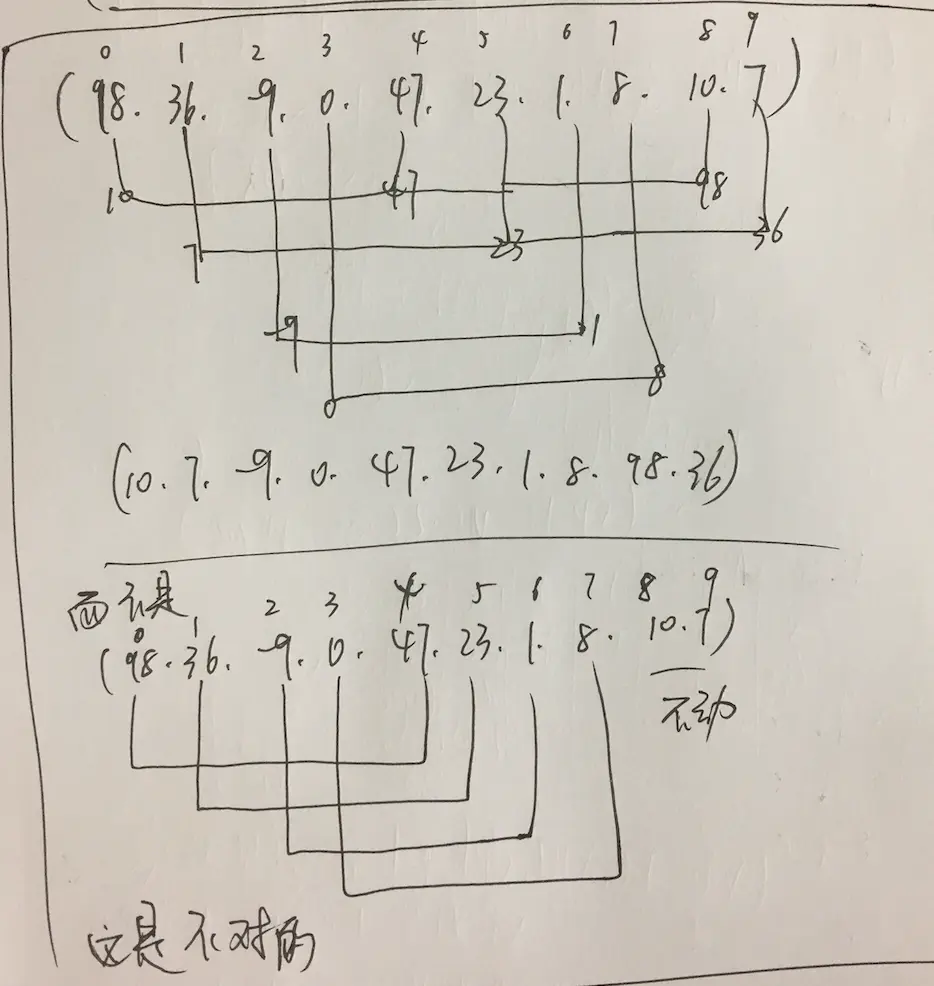 0 1 2 3 4 5 6 7 8 9
(98. 36. -9. 0. 47. 23. 1. 8. 10. 7)
10 47 98
7 23 36
-9 1
0 8
(10. 7. -9. 0. 47. 23. 1. 8. 98. 36)
而不是
0 1 2 3 4 5 6 7 8 9
(98. 36. -9. 0. 47. 23. 1. 8. 10. 7)
不动
这是不对的